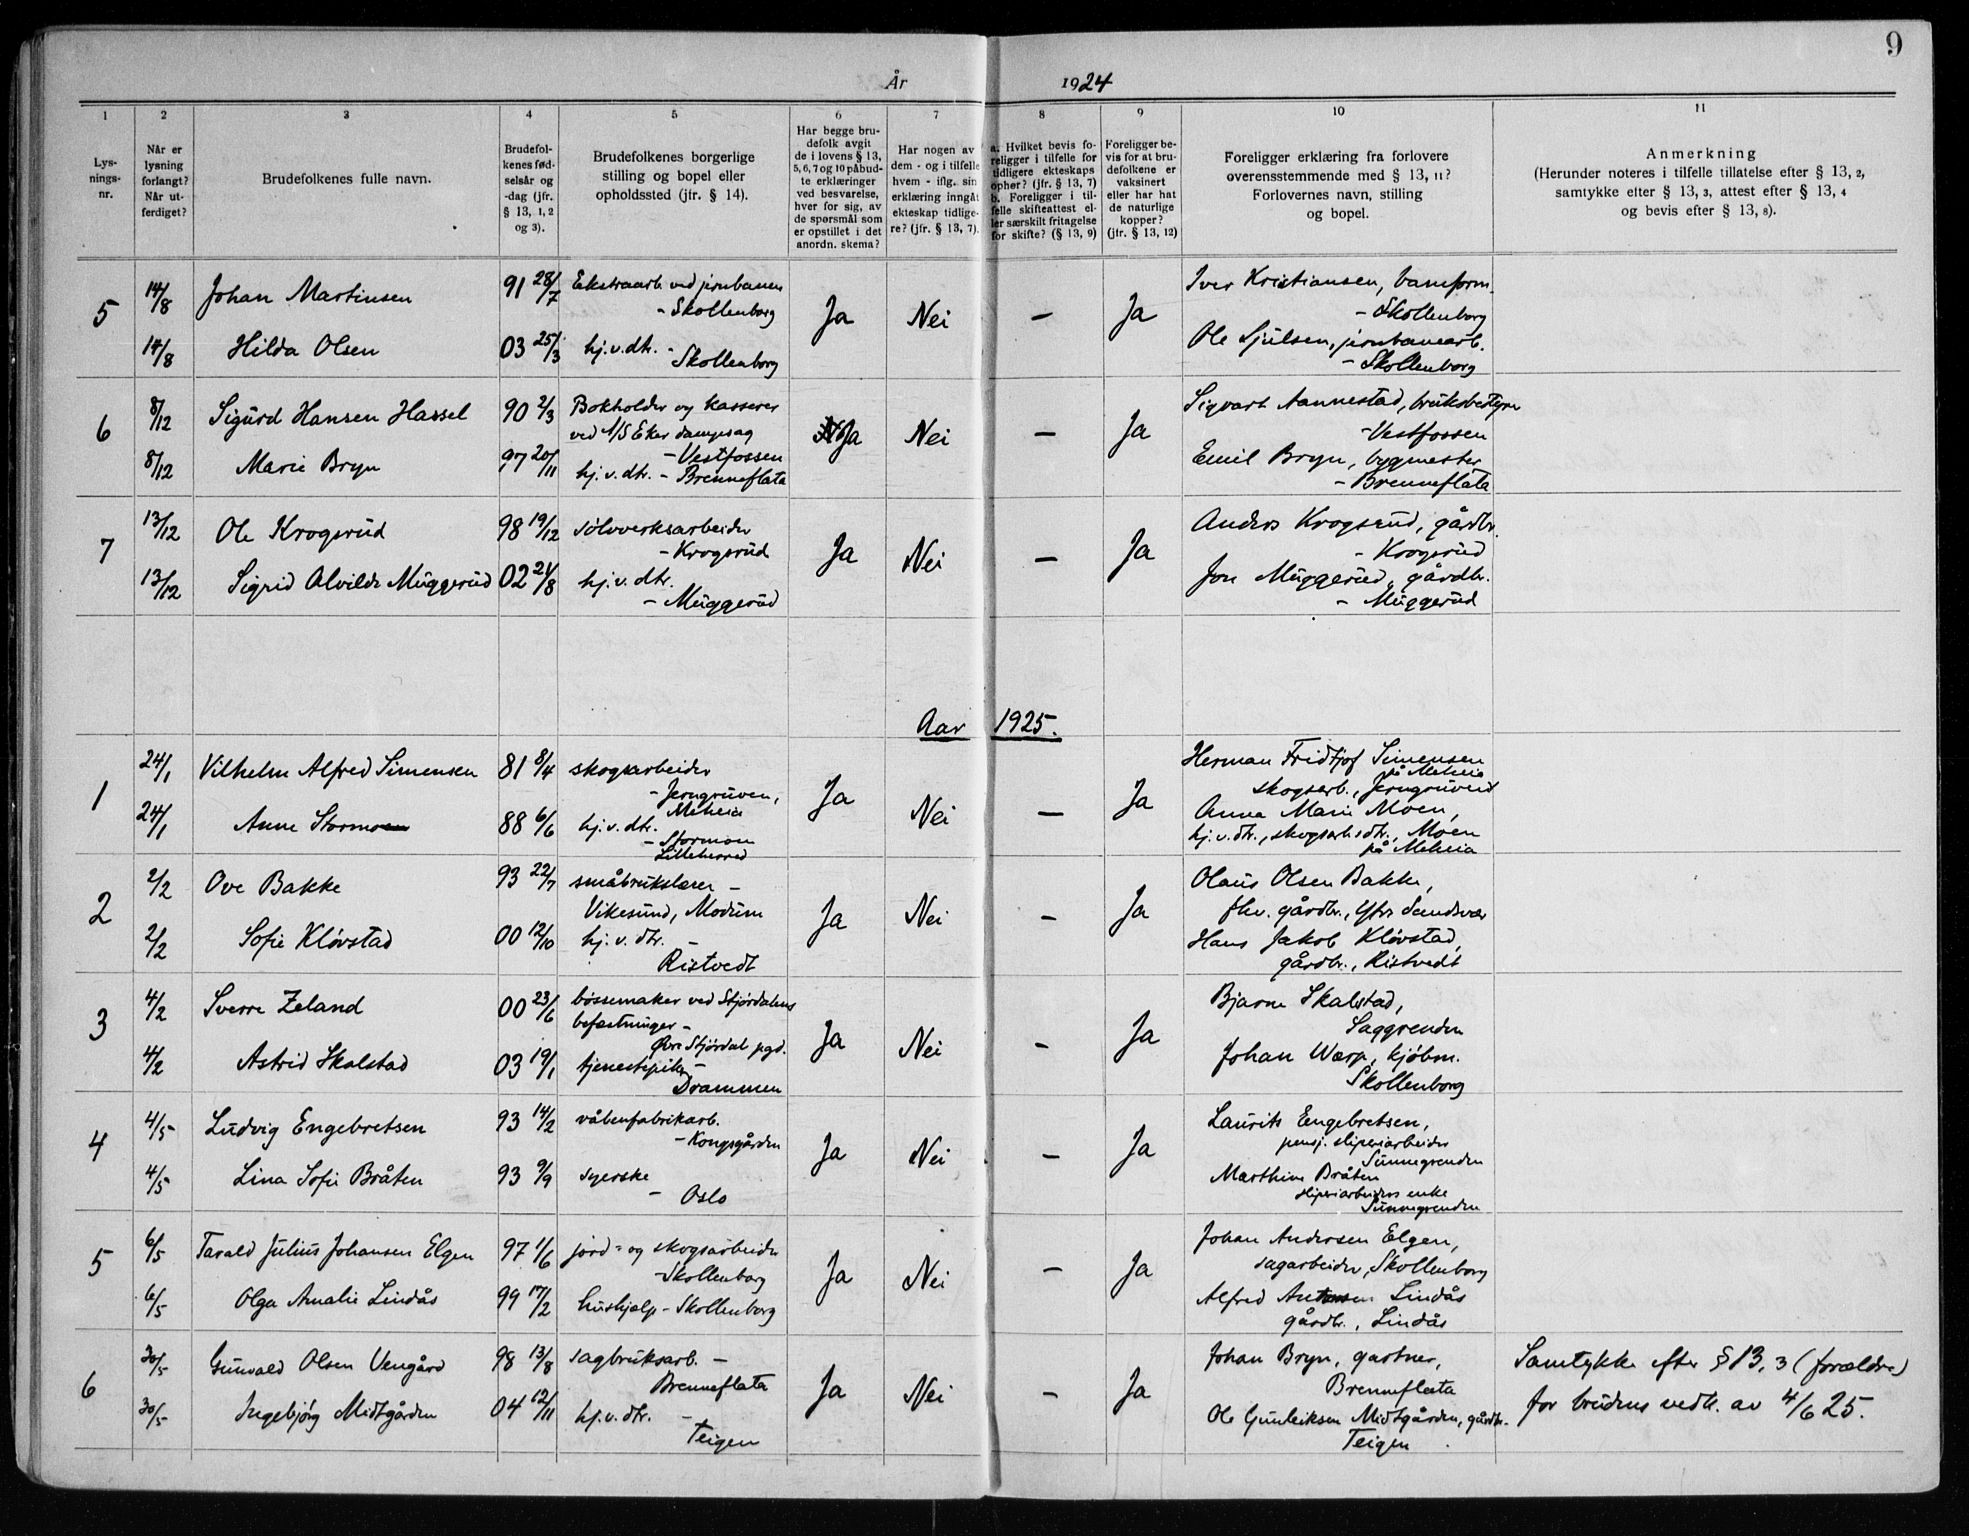 9
År 1924
1 2 3 4 5 6 7 8 9 10 11
Lys-
nings-
nr.
Når er
lysning
forlangt?
Når ut-
ferdiget?
Brudefolkenes fulle navn.
Brudefol-
kenes fød-
selsår og
-dag (jfr.
§ 13, 1, 2
og 3).
Brudefolkenes borgerlige
stilling og bopel eller
opholdssted (jfr. § 14).
Har begge bru-
defolk avgit
de i lovens § 13,
5, 6, 7 og 10 påbud-
te erklæringer
ved besvarelse,
hver for sig, av
de spørsmål som
er opstillet i det
anordn. skema?
Har nogen av
dem - og i tilfelle
hvem - iflg. sin
erklæring inngått
ekteskap tidlige-
re? (jfr. § 13, 7).
a. Hvilket bevis fo-
religger i tilfelle for
tidligere ekteskaps
opher? (jfr. § 13, 7)
b. Foreligger i til-
felle skifteattest el-
ler særskilt fritagelse
for skifte? (§ 13, 9)
Foreligger be-
vis for at bru-
defolkene er
vaksinert
eller har hat
de naturlige
kopper?
(jfr. § 13, 12)
Foreligger erklæring fra forlovere
overensstemmende med § 13, 11?
Forlovernes navn, stilling
og bopel.
Anmerkning
(Herunder noteres i tilfelle tillatelse efter § 13, 2,
samtykke efter § 13, 3, attest efter § 13, 4
og bevis efter § 13, 8).
5 14/8 Johan Martinsen 91 28/7 Ekstraarb. ved jernbanen
- Skollenborg
14/8 Hilda Olsen 03 25/3 hj.v.dtr. - Skollenborg
Ja Nei — Ja
Iver Kristiansen, baneform.
- Skollenborg
Ole Sjulsen, jernbanearb.
- Skollenborg
6 8/12 Sigurd Hansen Hassel 90 2/3 Bokholder og kasserer
ved A/S Eker dampsag
- Vestfossen
8/12 Marie Bryn 97 20/11 hj.v.dtr. - Brenneflata
Ja Nei — Ja
Sigvart Aannestad, bruksbestyrer
- Vestfossen
Emil Bryn, bygmester
- Brenneflata
7 13/12 Ole Krogsrud 98 19/12 sølvverksarbeider
- Krogsrud
13/12 Sigrid Alvilde Muggerud 02 21/8 hj.v.dtr.
- Muggerud
Ja Nei — Ja
Anders Krogsrud, gårdbr.
- Krogsrud
Jon Muggerud, gårdbr.
- Muggerud
Aar 1925.
1 24/1 Vilhelm Alfred Simensen 81 8/4 skogsarbeider
- Jerngruven,
Meheia
24/1 Anne Stormoen 88 6/6 hj.v.dtr.
- Stormoen
Lilleherred
Ja Nei — Ja
Herman Fridtjof Simensen
skogsarb., Jerngruven
på Meheia
Anna Marie Moen,
hj.v.dtr., skogsarb.dtr., Moen
på Meheia
2 2/2 Ove Bakke 93 22/7 småbrukslærer -
Vikesund, Modum
2/2 Sofie Kløvstad 00 12/10 hj.v.dtr. -
Ristvedt
Ja Nei — Ja
Olaus Olsen Bakke,
fhv. gårdbr., Ytre Sandsvær
Hans Jakob Kløvstad,
gårdbr., Ristvedt
3 4/2 Sverre Zeland 00 23/6 bøssemaker ved Stjørdalens
befæstninger -
Øvre Stjørdal pgd.
4/2 Astrid Skalstad 03 19/1 tjenestepike -
Drammen
Ja Nei - Ja
Bjarne Skalstad,
Saggrenden
Johan Wærp, kjøbm.
Skollenborg
4 4/5 Ludvig Engebretsen 93 14/2 våbenfabrikarb.
- Kongsgården
4/5 Lina Sofie Bråten 93 9/9 syerske
- Oslo
Ja Nei — Ja
Laurits Engebretsen,
pensj. sliperiarbeider
Sunnegrenden
Marthine Bråten
sliperiarbeiders enke
Sunnegrenden
5 6/5 Tarald Julius Johansen Elgen 97 1/6 jord- og skogsarbeider
- Skollenborg
6/5 Olga Amalie Lindås 99 17/2 hushjælp - Skollenborg
Ja Nei — Ja
Johan Andersen Elgen,
sagarbeider, Skollenborg
Alfred Antonsen Lindås
gårdbr., Lindås
6 30/5 Gunvald Olsen Vengård 98 13/8 sagbruksarb. -
Brenneflata
30/5 Ingebjørg Midtgården 04 12/11 hj.v.dtr. -
Teigen
Ja Nei — Ja
Johan Bryn, gartner,
Brenneflata
Ole Gunleiksen Midtgården, gårdbr.
Teigen
Samtykke efter § 13, 3 (forældre)
for brudens vedk. av 4/6 25.